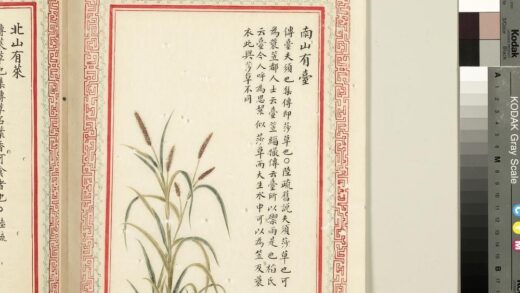 南山有臺
傳臺夫須也集傳即莎草也〇陸疏舊說夫須莎草也可
為蓑笠都人士云臺笠緇撮傳云臺所以禦雨是也稻氏
云臺今人呼為思 似莎草而大生水中可以為笠及蓑
衣此與莎草不同
北山有萊
傳萊草也集傳草名葉香可食者也〇陸疏
Kodak
KODAK Gray Scale
A
M